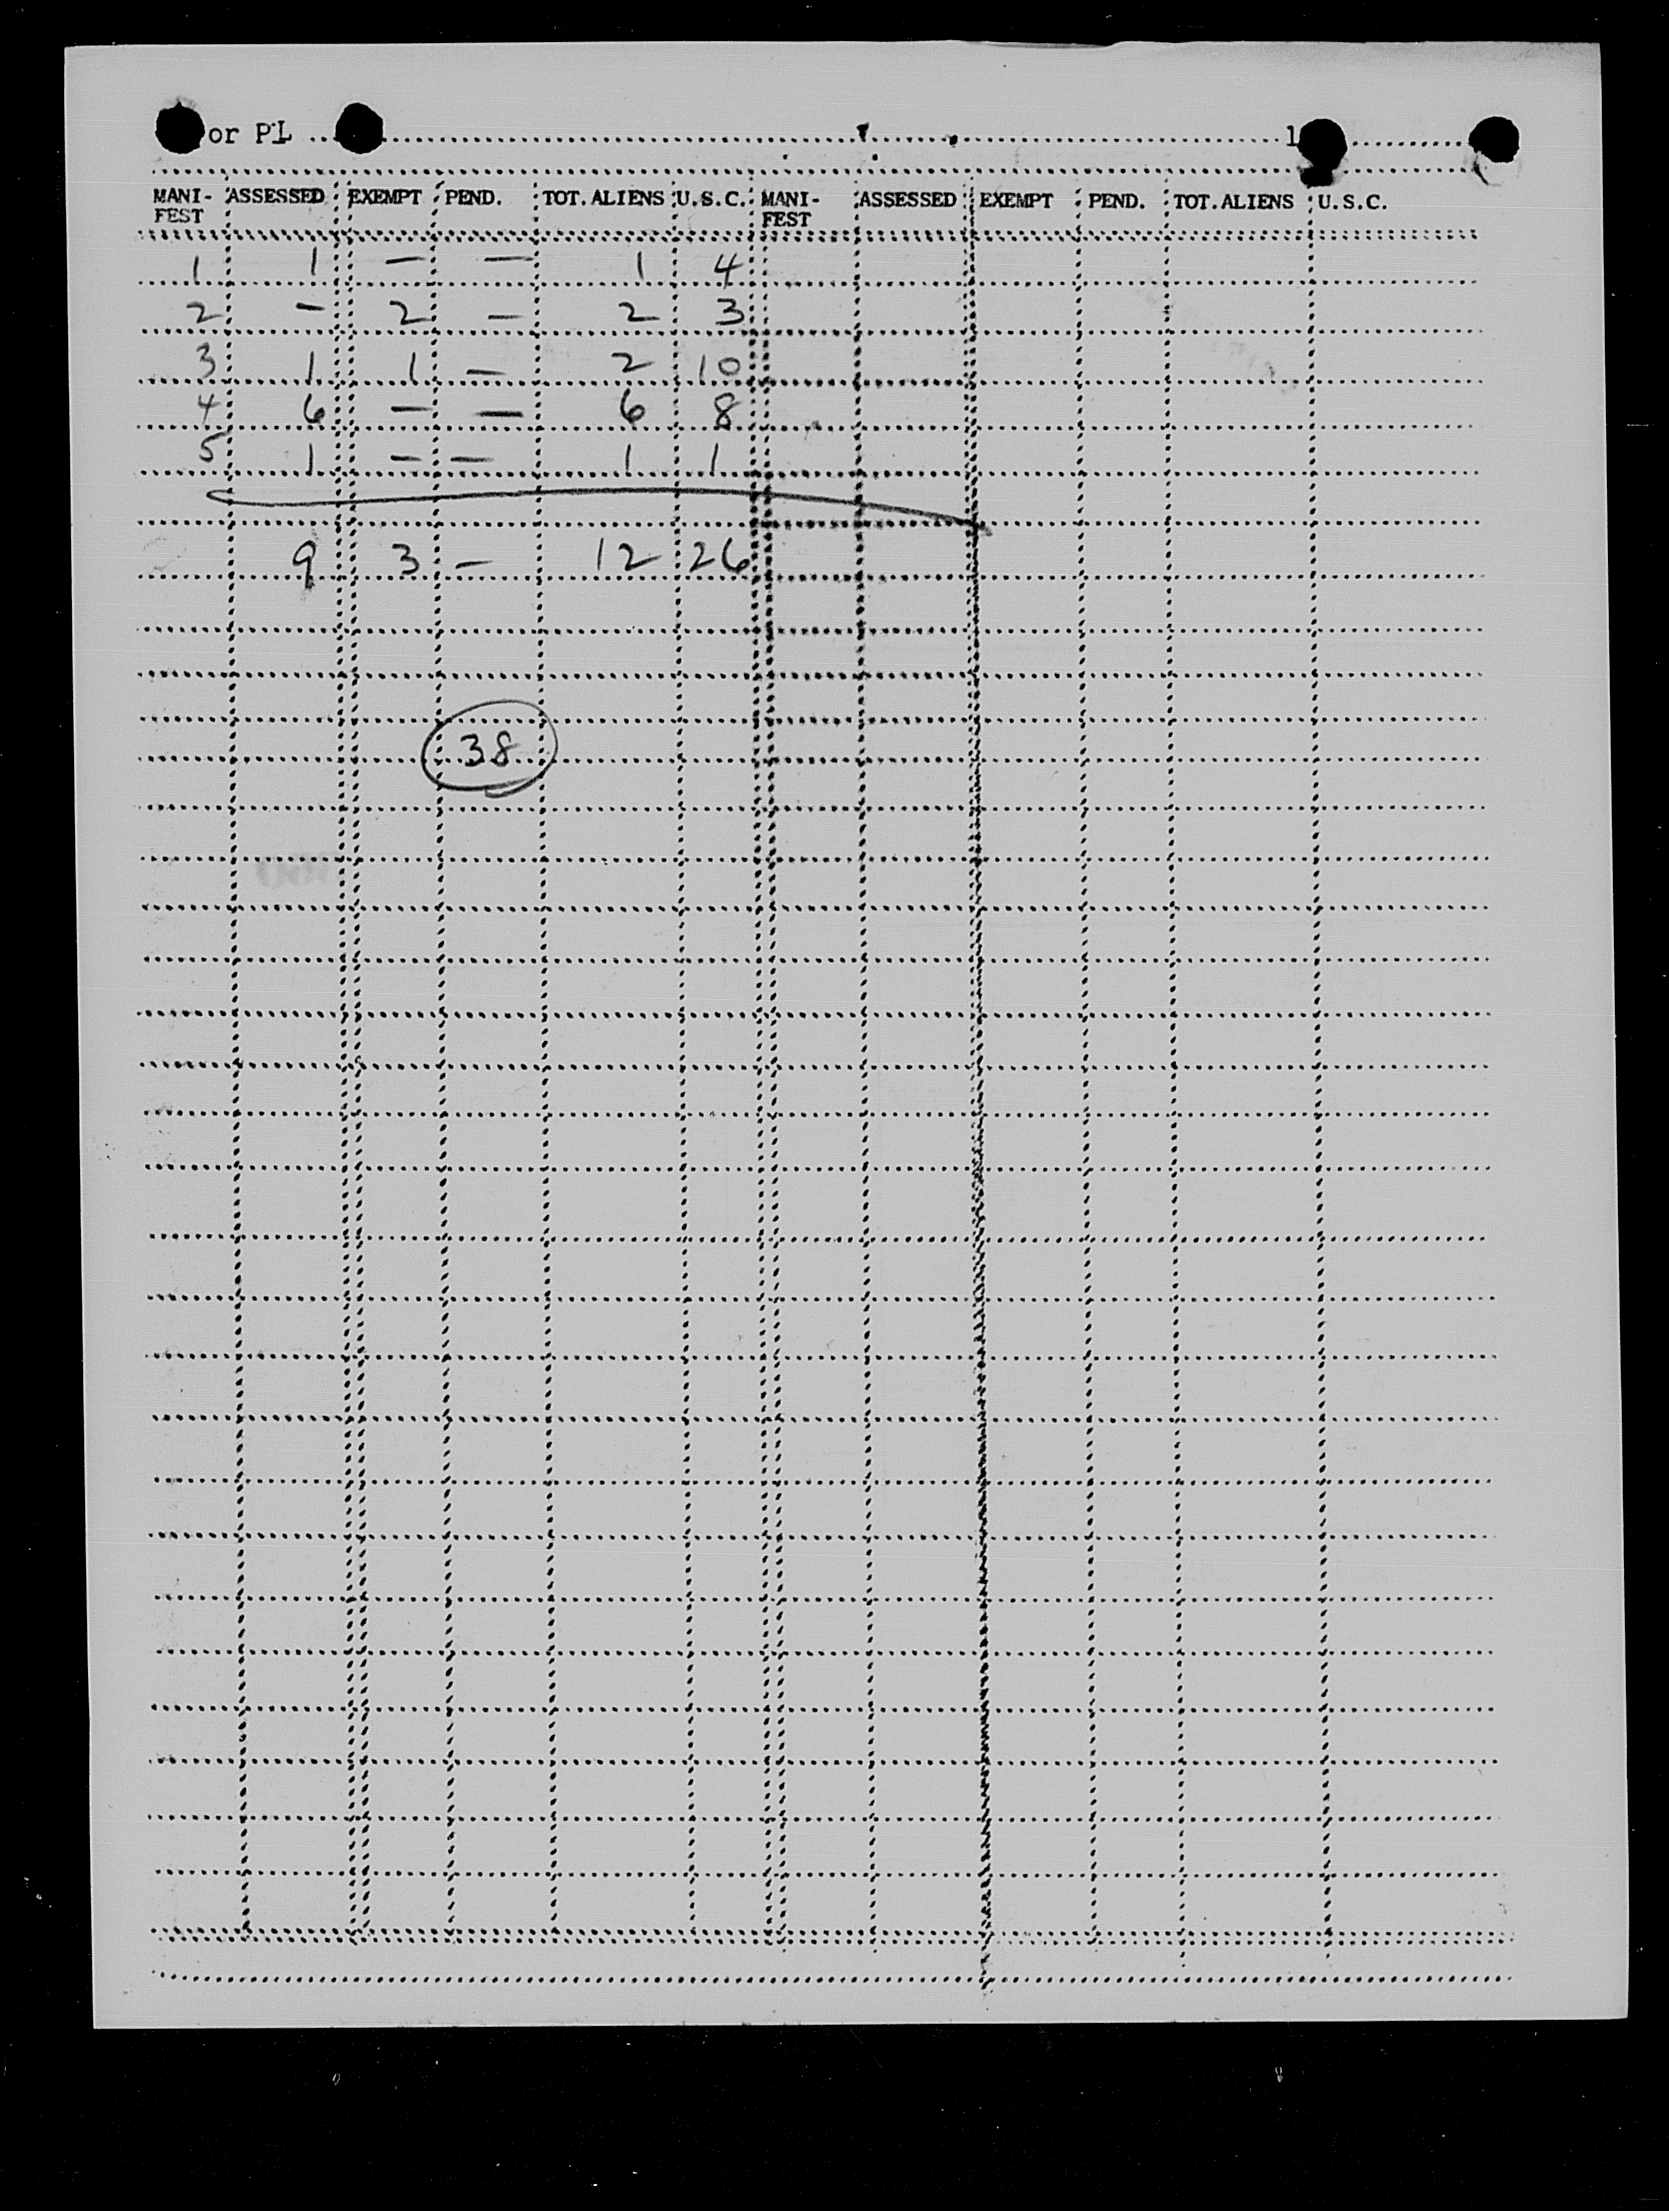 or PL 1
MANI-FEST ASSESSED EXEMPT PEND. TOT. ALIENS U.S.C. MANI-FEST ASSESSED EXEMPT PEND. TOT. ALIENS U.S.C.
1 1 — — 1 4
2 — 2 — 2 3
3 1 1 — 2 10
4 6 — — 6 8
5 1 — — 1 1
9 3 — 12 26
38